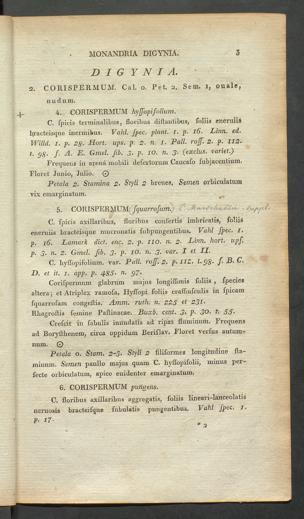 MONANDRIA DIGYNIA. 3
DIGYNIA.
2. CORISPERMUM. Cal. 0. Pet. 2. Sem. 1, ouale,
nudum.
4. CORISPERMUM hyſſopifolium.
C. ſpicis terminalibus, floribus diſtantibus, foliis eneruiis
bracteisque inermibus. Vahl. ſpec. plant. 1. p. 16. Linn. ed.
Willd. 1. p. 28. Hort. ups. p. 2. n. 1. Pall. roſſ. 2. p. 112.
t. 98. f. A. E. Gmel. ſib. 3. p. 10. n. 3. (exclus. variet.)
Frequens in arena mobili deſertorum Caucaſo ſubjacentium.
Floret Junio, Julio. ☉
Petala 2. Stamina 2. Styli 2 breues. Semen orbiculatum
vix emarginatum.
5. CORISPERMUM ſquarroſum.
C. ſpicis axillaribus, floribus confertis imbricatis, foliis
eneruiis bracteisque mucronatis ſubpungentibus. Vahl ſpec. 1.
p. 16. Lamark dict. enc. 2. p. 110. n. 2. Linn. hort. upſ.
p. 3. n. 2. Gmel. ſib. 3. p. 10. n. 3. var. I et II.
C. hyſſopifolium. var. Pall. roſſ. 2. p. 112. t. 98. f. B. C.
D. et it. 1. app. p. 485. n. 97.
Coriſpermum glabrum majus longiſſimis foliis, ſpecies
altera; et Atriplex ramoſa, Hyſſopi foliis craſſiuſculis in ſpicam
ſquarroſam congeſtis. Amm. ruth. n. 225 et 231.
Rhagroſtis ſemine Paſtinacae. Buxb. cent. 3. p. 30. t. 55.
Creſcit in ſabulis inundatis ad ripas fluminum. Frequens
ad Boryſthenem, circa oppidum Beriſlav. Floret verſus autum-
num. ☉
Petala 0. Stam. 2-3. Styli 2 filiformes longitudine ſta-
minum. Semen paullo majus quam C. hyſſopifolii, minus per-
fecte orbiculatum, apice euidenter emarginatum.
6. CORISPERMUM pungens.
C. floribus axillaribus aggregatis, foliis lineari-lanceolatis
neruosis bracteisque ſubulatis pungentibus. Vahl ſpec. 1.
p. 17.
* 2